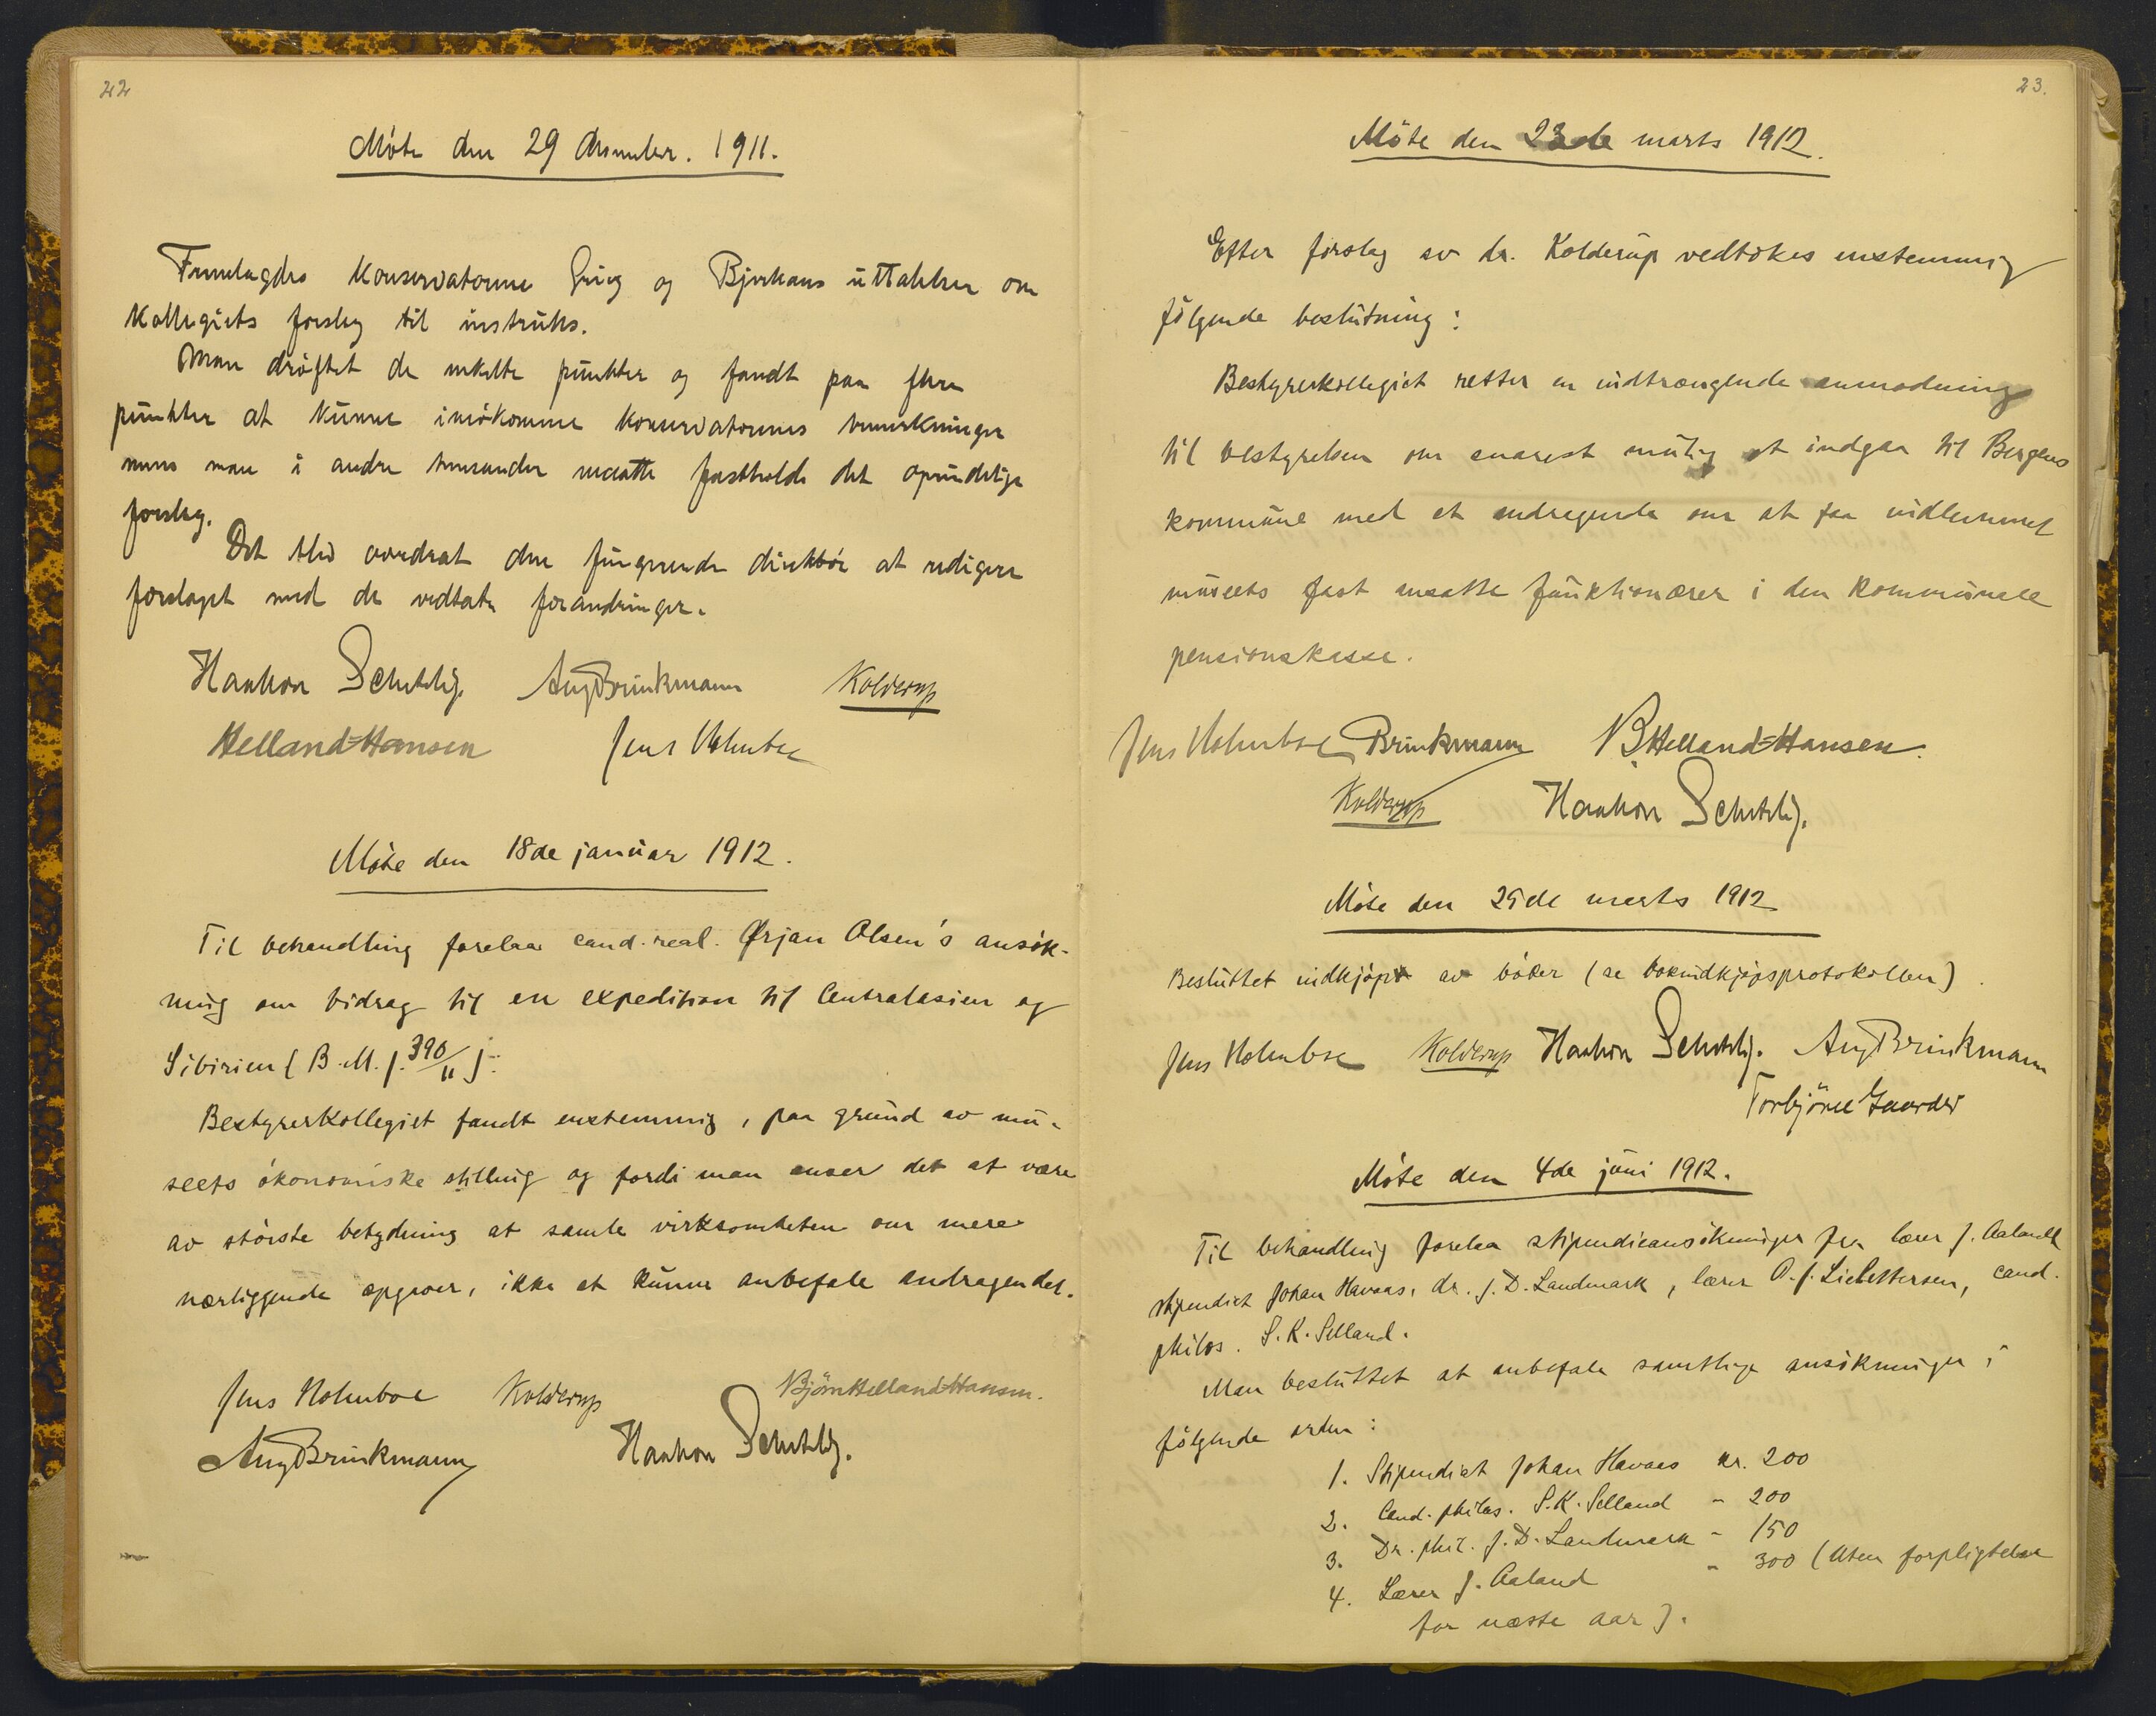 22
Möte den 29 desember. 1911.
Fremlagdes konservatorerne Grieg og Bjerkans uttalelser om
kollegiets forslag til instruks.
Man drøftet de enkelte punkter og fandt paa flere
punkter at kunne imøkomme konservatorernes bemerkninger
mens man i andre henseender maatte fastholde det oprindelige
forslag.
Det blev overdrat den fungerende direktør at redigere
forslaget med de vedtatte forandringer.
Haakon Schetelig. Aug Brinkmann Kolderup
Helland-Hansen Jens Holmboe
Möte den 18de januar 1912.
Til behandling forelaa cand. real. Ørjan Olsen's ansök-
ning om bidrag til en expedition til Centralasien og
Sibirien (B.M. j. 390/11):
Bestyrerkollegiet fandt enstemmig, paa grund av mu-
seets ökonomiske stilling og fordi man anser det at være
av störste betydning at samle virksomheten om mere
nærliggende opgaver, ikke at kunne anbefale andragendet.
Jens Holmboe Kolderup Björn Helland-Hansen.
Aug Brinkmann Haakon Schetelig.
23.
Möte den 23de marts 1912.
Efter forslag av dr. Kolderup vedtokes enstemmig
fölgende beslutning:
Bestyrerkollegiet retter en indtrængende anmodning
til bestyrelsen om snarest mulig at indgaa til Bergens
kommune med et andragende om at faa indlemmet
museets fast ansatte funktionærer i den kommunale
pensionskasse.
Jens Holmboe Brinkmann B. Helland-Hansen.
Kolderup Haakon Schetelig.
Möte den 25de marts 1912
Besluttet indkjöpt av böker (se bokindkjøpsprotokollen).
Jens Holmboe Kolderup Haakon Schetelig. Aug Brinkmann
Torbjörn Gaarder
Möte den 4de juni 1912.
Til behandling forelaa stipendieansökninger fra lærer J. Aaland
stipendiat Johan Havaas, dr. J. D. Landmark, lærer O. J. Lie-Pettersen, cand.
philos. S. K. Selland.
Man besluttet at anbefale samtlige ansökninger i
fölgende orden:
1. Stipendiat Johan Havaas kr. 200
2. Cand. philos. S. K. Selland - 200
3. Dr. phil. J. D. Landmark - 150
4. Lærer J. Aaland - 300 (uten forpligtelse
for næste aar).